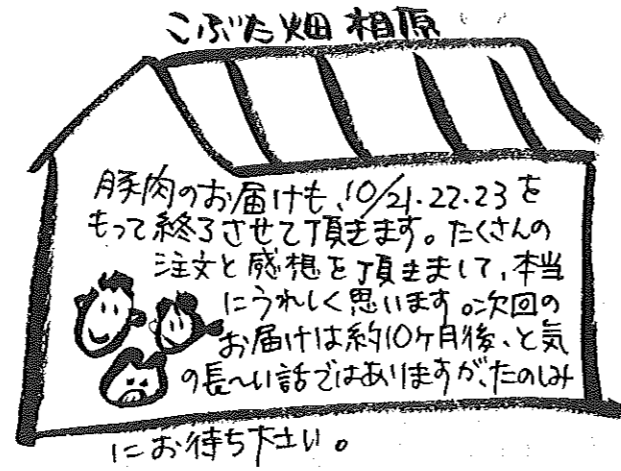 こぶた畑 相原
豚肉のお届けも、10/21.22.23を
もって終了させて頂きます。たくさんの
注文と感想を頂きまして、本当
にうれしく思います。次回の
お届けは約10ヶ月後、と気
の長〜い話ではありますが、たのしみ
にお待ち下さい。